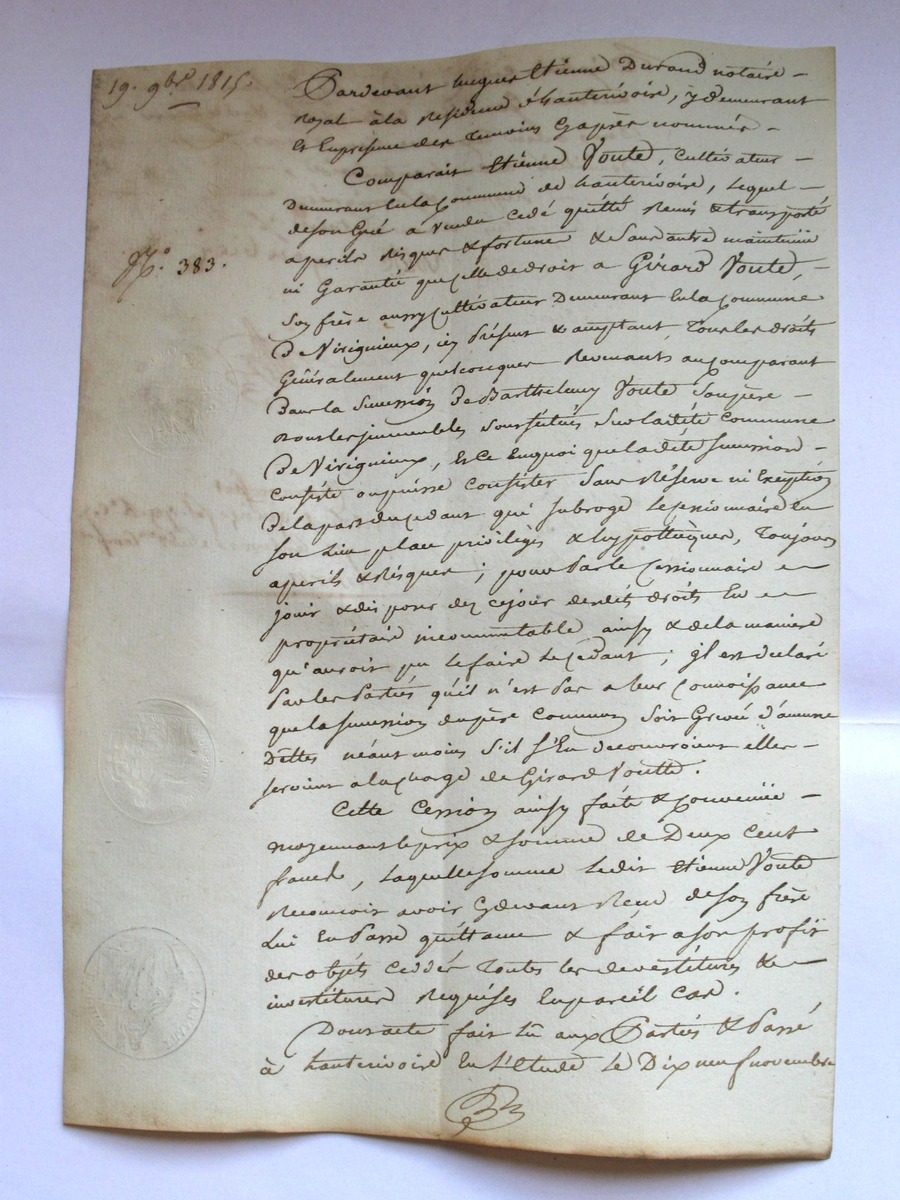 19. 9bre 1815.
N.° 383.
Pardevant hugues Etienne Durand notaire
Royal à la Residence d'hauterivoire, y demeurant
et En présence des Temoins cyaprès nommés
Comparait Etienne Voute, Cultivateur
Demeurant En la Commune de hauterivoire, Lequel
de son Gré a vendu cedé quitté Remis & transporté
a perils Risques & fortune & sans autre maintenüe
ni Garantie que celle de droit a Girard Voute,
son frère aussy cultivateur Demeurant En la Commune
De Virignieux, icy présent & acceptant Tous les droits
Généralement quelconques Revenants au Comparant
Dans la Succession De Barthelemy Voute son père
sous les immeubles sont situés sur la dite Commune
De Virignieux, et Ce En quoi que la dite succession
Consiste ou puisse Consister Sans Réserve ni Exception
De la part du cedant qui subroge Le cessionnaire En
son Lieu place privilèges & hyppothèques, Toujours
a perils & Risques ; pour Par le Cessionnaire en
jouir & disposer dez ce jour desdits droits En
propriétaire incommutable ainsy & de la manière
qu'auroit pu le faire Le Cedant ; il est declaré
Par les Parties qu'il n'est Pas a leur Connoissance
que la succession du père Commun soit Grevée d'aucune
Dettes néant moins S'il s'En decouvroient elles
seroient a la charge de Girard Voutte.
Cette Cession ainsy faite & Convenüe
moyennant le prix & somme de Deux Cent
francs, Laquelle somme Ledit Etienne Voute
Reconnoit avoir cydevant Reçu de son frère
Lui En Passe quittance & fait a son profit
des objets Ceddés Toutes les devestitures &
investitures Requises En pareil Cas.
Dont acte fait Lû aux Parties & Passé
à hauterivoire En L'Etude Le Dix neuf novembre